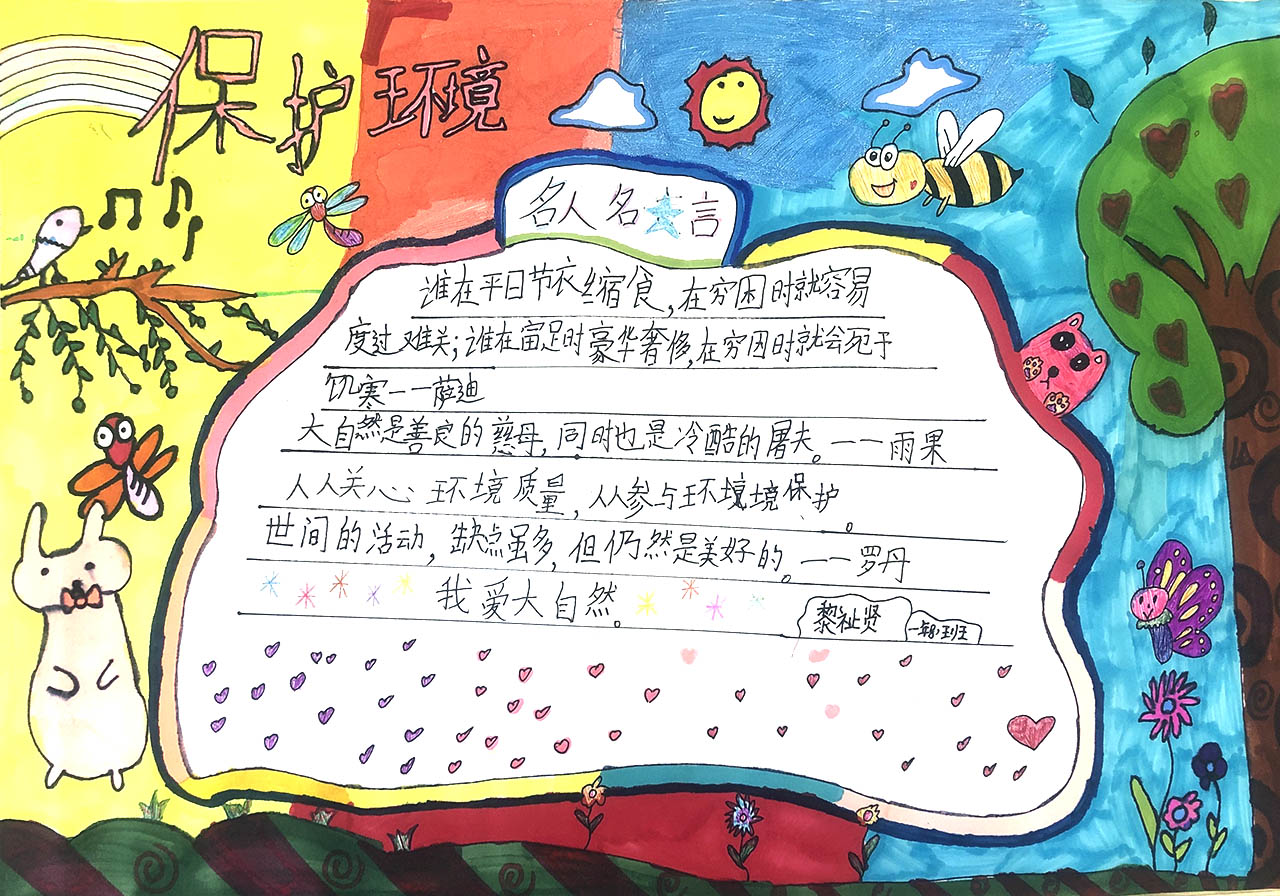 保护环境
名人名言
谁在平日节衣缩食,在穷困时就容易
度过难关;谁在富足时豪华奢侈,在穷困时就会死于
饥寒——萨迪
大自然是善良的慈母,同时也是冷酷的屠夫。——雨果
人人关心环境质量,人人参与环境境保护。
世间的活动,缺点虽多,但仍然是美好的。——罗丹
我爱大自然。
黎祉贤
一年8班